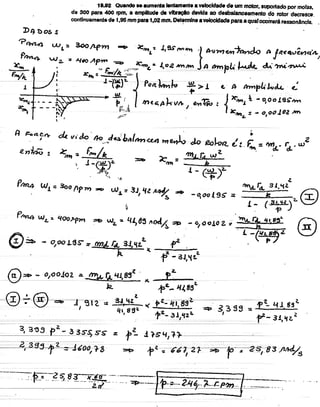 19.92 Quando se aumenta lentamente a velocidade de um motor, suportado por molas,
de 300 para 400 rpm, a amplitude da vibração devida ao desbalanceamento do rotor decresce
continuamente de 1,95 mm para 1,02 mm. Determine a velocidade para a qual ocorrerá ressonância.
DADOS:
Para ω₁ = 300 rpm ⇒ x_m₁ = 1,95 mm } Aumentando a frequência,
Para ω₂ = 400 rpm ⇒ x_m₂ = 1,02 mm } A amplitude diminui
x_m / (F_m/k) = 1 / (1-(ω/p)²)
Portanto ω/p > 1 e a amplitude é
negativa, então: { x_m₁ = -0,00195 m
x_m₂ = -0,00102 m
A força devido ao desbalanceamento do rotor é: F_m = m₁ . r₁ . ω²
então: x_m = (F_m/k) / (1-(ω/p)²) ⇒ x_m = (m₁ r₁ ω²/k) / (1-(ω/p)²)
Para ω₁ = 300 rpm ⇒ ω₁ = 31,42 rad/s ⇒ -0,00195 = (m₁ r₁ 31,42²/k) / (1-(31,42/p)²) (I)
Para ω₂ = 400 rpm ⇒ ω₂ = 41,89 rad/s ⇒ -0,00102 = (m₁ r₁ 41,89²/k) / (1-(41,89/p)²) (II)
(I) ⇒ -0,00195 = m₁ r₁ 31,42²/k × p²/(p²-31,42²)
(II) ⇒ -0,00102 = m₁ r₁ 41,89²/k × p²/(p²-41,89²)
(I) ÷ (II) ⇒ 1,912 = 31,42²/41,89² × (p²-41,89²)/(p²-31,42²) ⇒ 3,399 = (p²-41,89²)/(p²-31,42²)
3,399 p² - 3355,55 = p² 1754,77
2,399 p² = 1600,78 ⇒ p² = 667,27 ⇒ p = 25,83 rad/s
p = 25,83 × 60/2π ⇒ p = 246,7 rpm